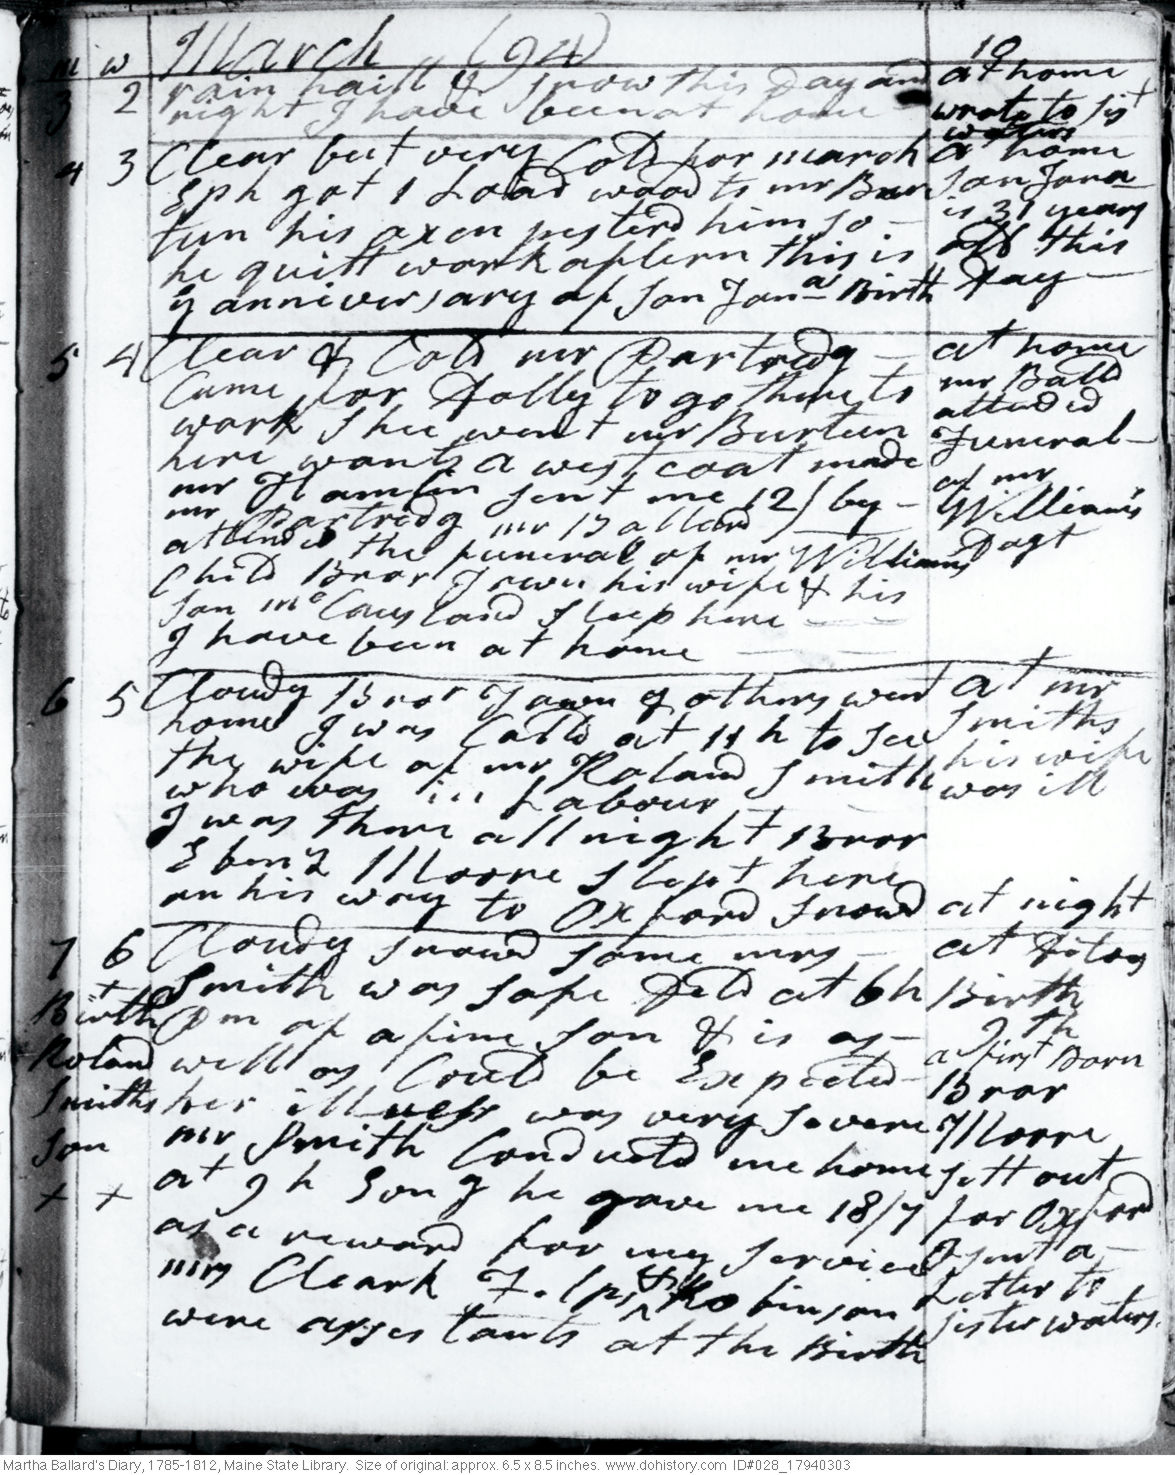 m w March (94) 10
3 2 rain haill & snow this Day and
night I have been at home
at home
wrote to sist
waters
4 3 Clear but very Cold for march
Eph got 1 Load wood to mr Bur
tun his oxen pesterd him so -
he quitt work aftern this is
ye anniversary of son Jona Birth
at home
son Jona
is 31 years
old this
Day -
5 4 Clear & Cold mr Partredg -
Came for Dolly to go there to
work shee went mr Burtun
here wants a west coat made
mr Hamlin sent me 12/ by -
mr Partredg mr Ballard
attended the funeral of mr Williams
Child Bror Jewn his wife & his
son mc Causland sleep here - -
I have been at home - -
at home
mr Balld
attended
Funeral -
of mr
William's
Dagt
6 5 Cloudy Bror Jewn & others went
home I was Calld at 11 h to see
the wife of mr Roland Smith
who was in Labour
I was there all night Bror
Ebenz Moore slept here
on his way to Oxford snowd
at mr
Smiths
his wife
was ill
at night
7 6 Cloudy snowd some mrs -
Smith was safe Deld at 6 h
Pm of a fine son & is as -
well as Could be Expected -
her illness was very severe
mr Smith Conducted me home
at 9 h Eveng he gave me 18/7
as a reward for my service
mrs Cleark &
Robinson
were assistants at the Birth
+
Birth
Roland
Smiths
son
+ +
at Ditoes
Birth
9th
a first Born
Bror
Moore
sett out
for Oxford
I sent a -
Letter to
sister waters.
Martha Ballard's Diary, 1785-1812, Maine State Library. Size of original: approx. 6.5 x 8.5 inches. www.dohistory.com ID#028_17940303